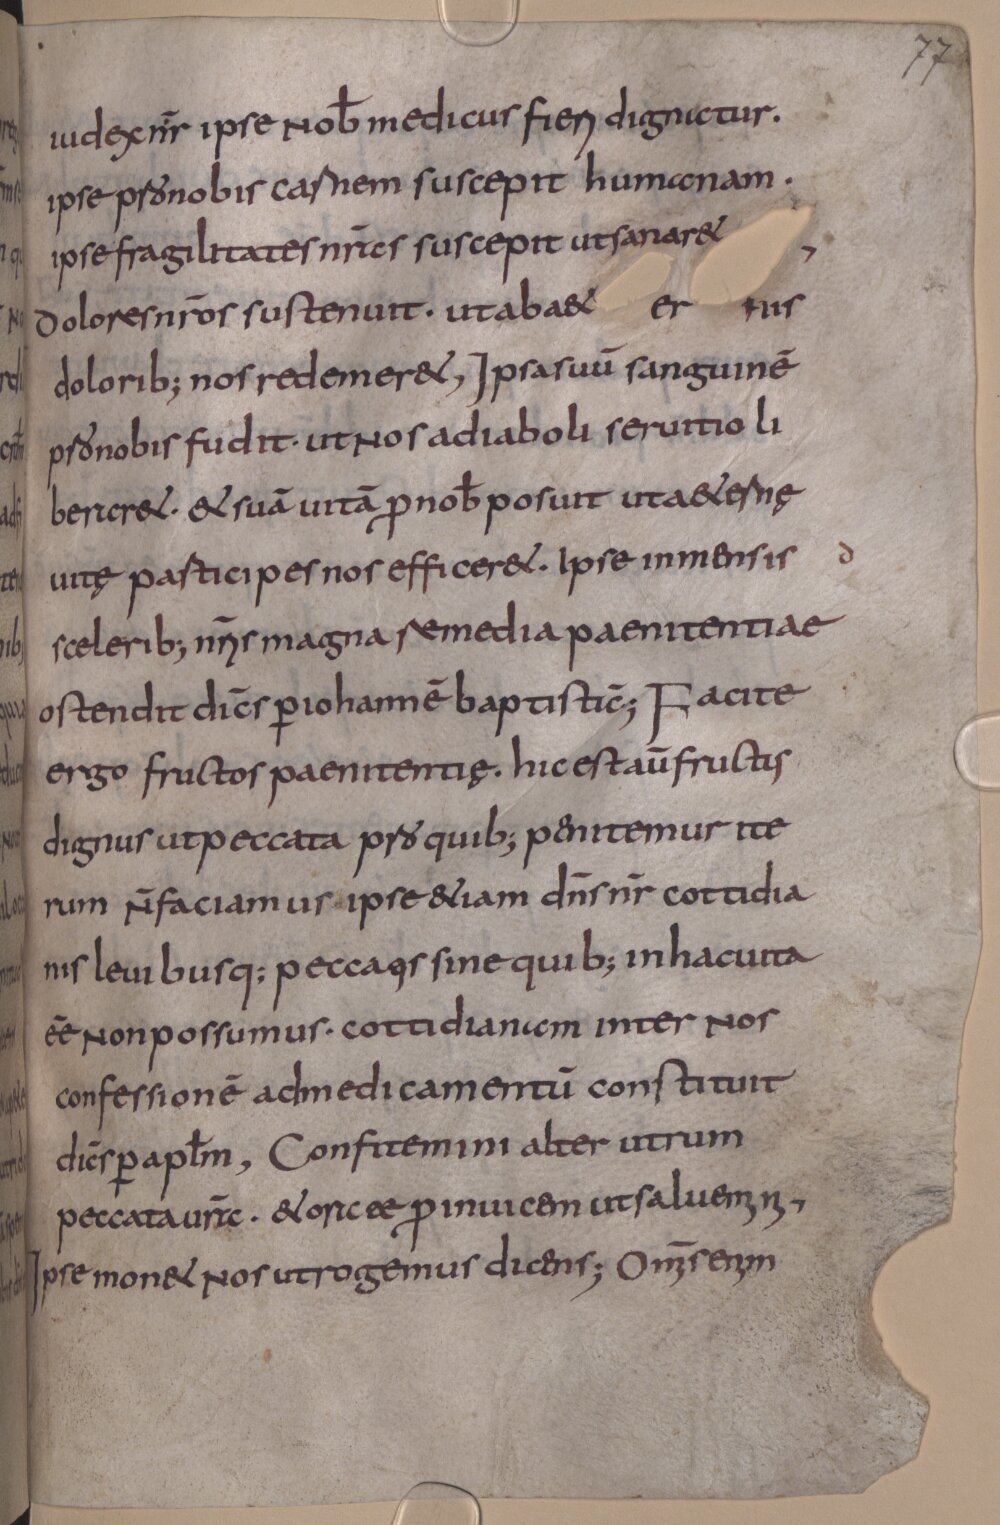 77
iudex nr̄r ipse nob̄ medicus fieri dignatur.
ipse pro nobis carnem suscepit humanam.
ipse fragilitates nr̄as suscepit ut sanar&,
dolores nr̄os sustenuit. ut ab a& er nis
dolorib; nos redemer&, Ipsa suū sanguinē
pro nobis fudit. ut nos a diaboli seruitio li
berar&. & suā uitā p̄ nob̄ posuit ut a&ernę
uitę participes nos efficer&. Ipse inmensis d
scelerib; nr̄is magna remedia paenitentiae
ostendit dic̄s p̱ iohannē baptistā; Facite
ergo fructos paenitentię. hic est aū fructis
dignus ut peccata pro quib; penitemus ite
rum n̄ faciamus ipse &iam dn̄s nr̄ cottidia
nis leuibusq; peccatis sine quib; in hac uita
ēē non possumus. cottidianam inter nos
confessionē ad medicamentū constituit
dic̄s p̱ apl̄m, Confitemini alter utrum
peccata ur̄a. & orate p̱ inuicem ut saluemini,
Ipse mon& nos ut rogemus dicens; Om̄s enim